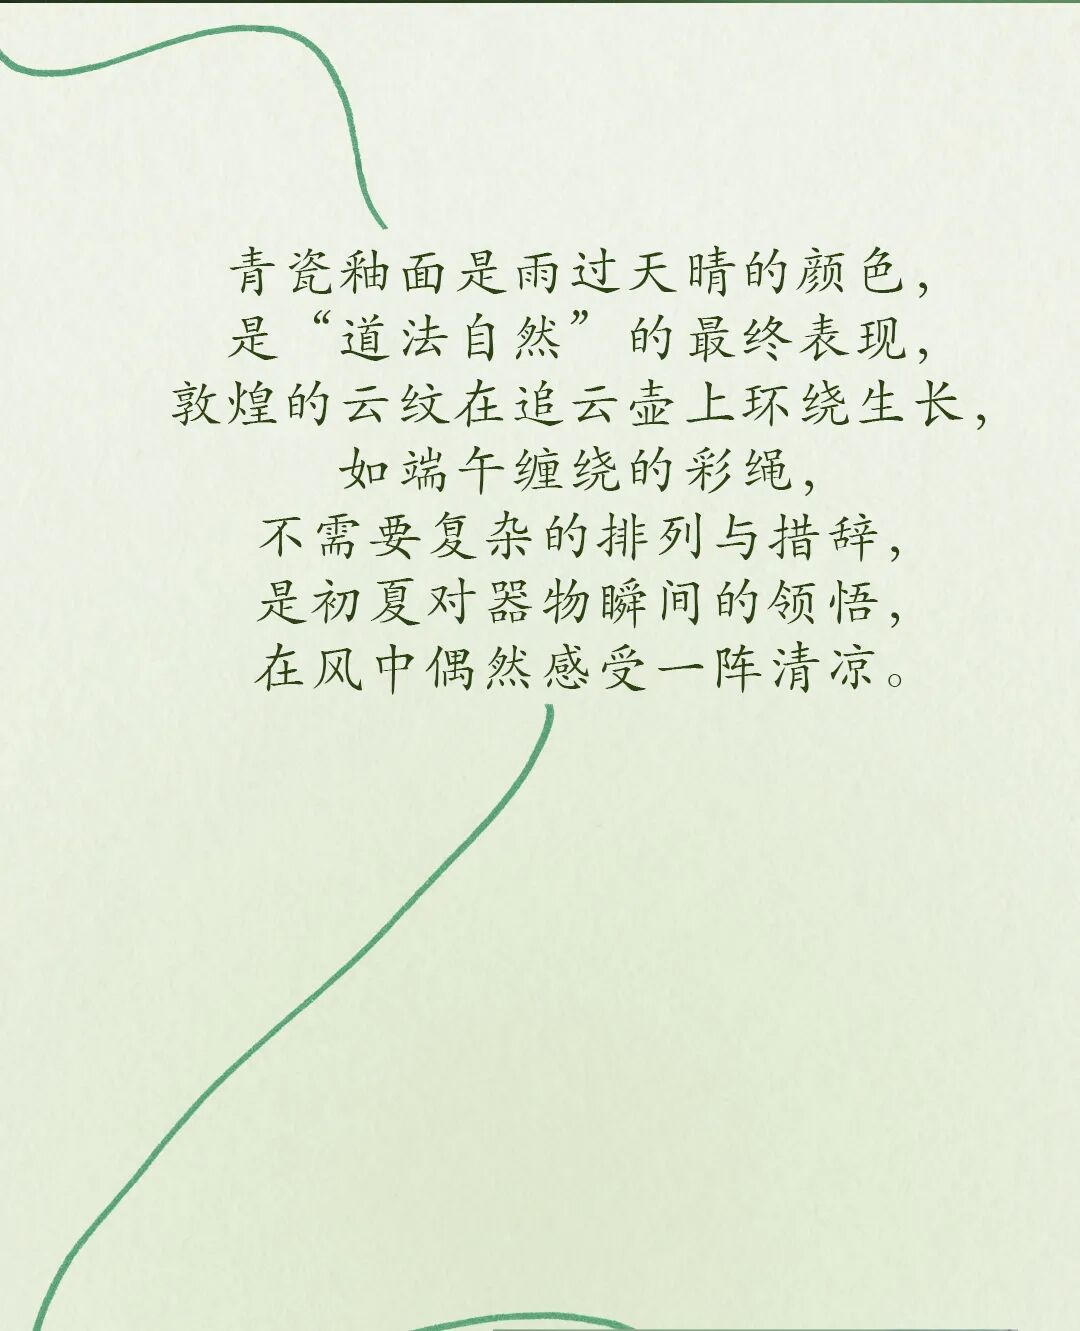 青瓷釉面是雨过天晴的颜色，
是“道法自然”的最终表现，
敦煌的云纹在追云壶上环绕生长，
如端午缠绕的彩绳，
不需要复杂的排列与措辞，
是初夏对器物瞬间的领悟，
在风中偶然感受一阵清凉。